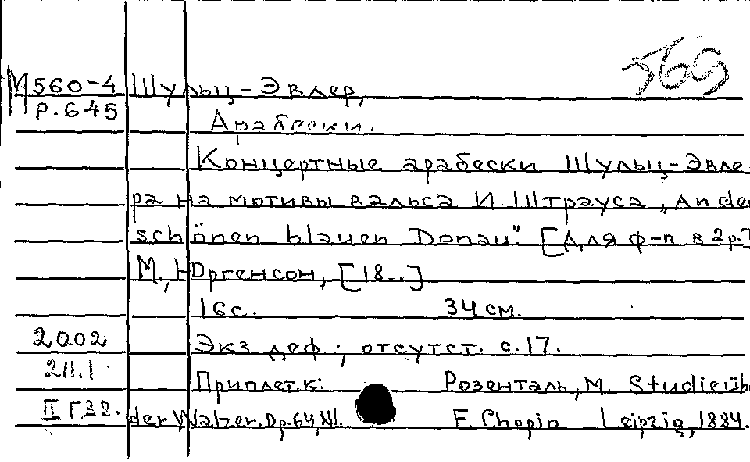 569
М560-4 Шульц-Эвлер,
Р.645 Арабески.
Концертные арабески Шульц-Эвле-
ра на мотивы вальса И Штрауса „An der
schönen blauen Donau". [Для ф-п в 2р.]
М., Юргенсон, [18..]
16с. 34 см.
2002 Экз деф.; отсутст. с.17.
211.1 Приплет.к: Розенталь, М. Studie üb
II Г32. der Walzer. Op.64, №1. F. Chopin Leipzig, 1884.